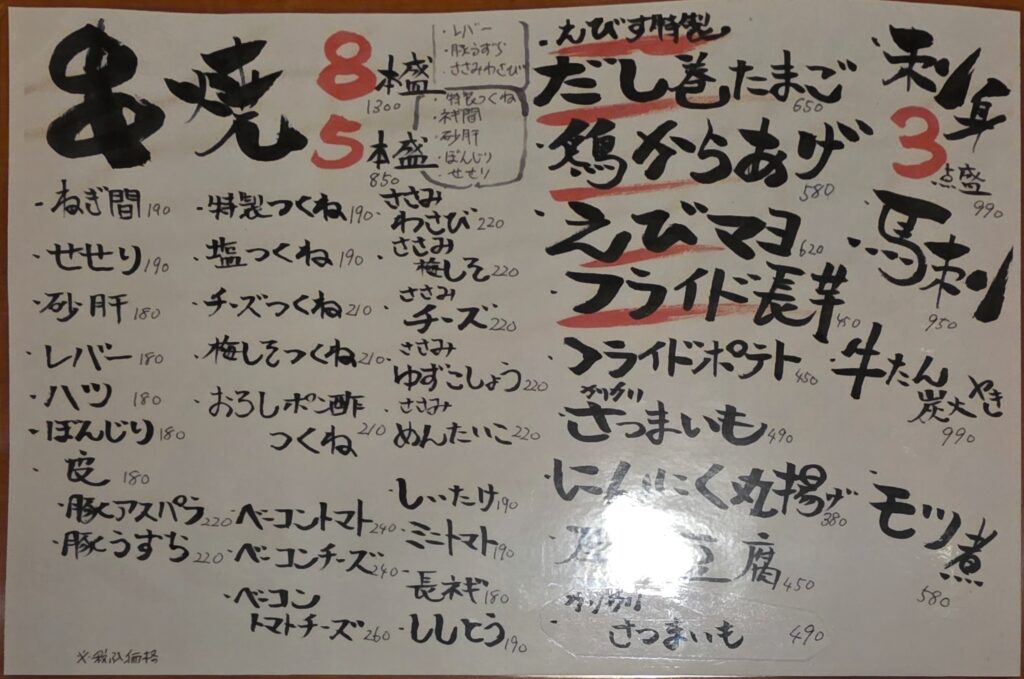 串焼
8本盛
1300
・レバー
・豚うずら
・ささみわさび
5本盛
850
・特製つくね
・ネギ間
・砂肝
・ぼんじり
・せせり
・ねぎ間 190
・せせり 190
・砂肝 180
・レバー 180
・ハツ 180
・ぼんじり 180
・皮 180
・豚アスパラ 220
・豚うずら 220
・特製つくね 190
・塩つくね 190
・チーズつくね 210
・梅しそつくね 210
・おろしポン酢
つくね 210
・ベーコントマト 240
・ベーコンチーズ 240
・ベーコン
トマトチーズ 260
・ささみ
わさび 220
・ささみ
梅しそ 220
・ささみ
チーズ 220
・ささみ
ゆずこしょう 220
・ささみ
めんたいこ 220
・しいたけ 190
・ミニトマト 190
・長ネギ 180
・ししとう 190
※税込価格
・えびす特製
だし巻たまご 650
・鶏からあげ 580
・えびマヨ 620
・フライド長芋 450
・フライドポテト 450
・カリカリ
さつまいも 490
・にんにく丸揚げ 380
豆腐 450
・カリカリ
さつまいも 490
・刺身
3点盛
990
・馬刺し
950
・牛たん
炭火やき
990
・モツ煮
580